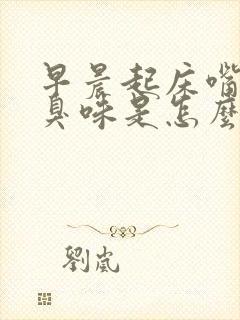 早晨起床嘴
臭味是怎麼
劉嵐